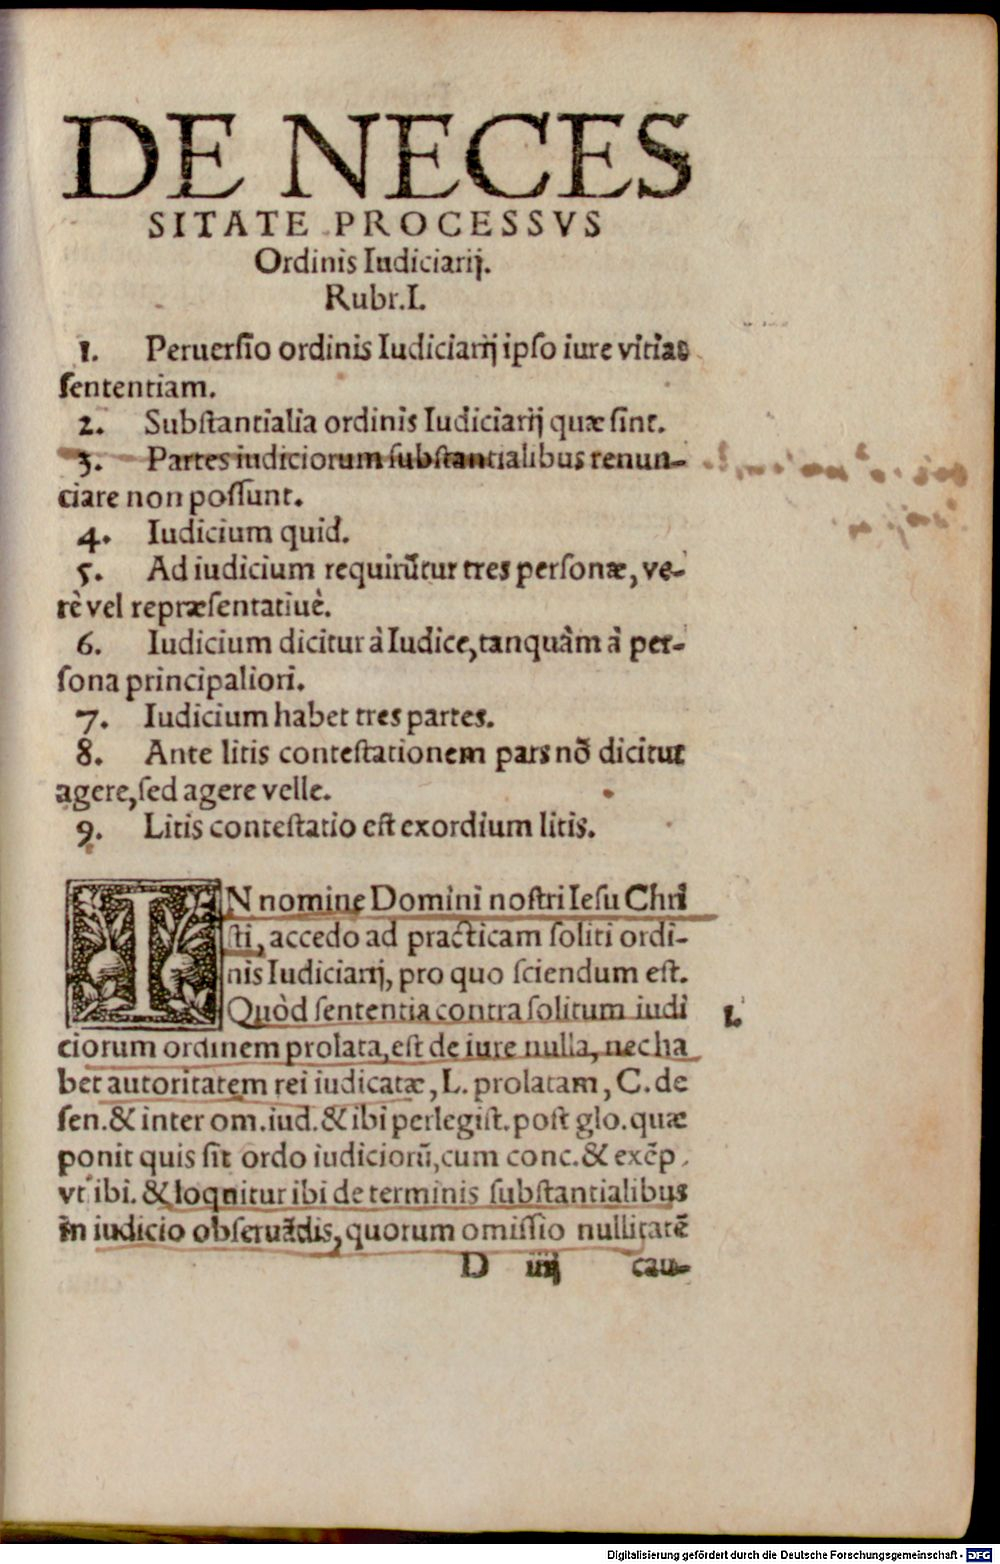 DE NECES
SITATE PROCESSVS
Ordinis Iudiciarij.
Rubr.I.
1. Peruersio ordinis Iudiciarij ipso iure vitiat
sententiam.
2. Substantialia ordinis Iudiciarij quæ sint.
3. Partes iudiciorum substantialibus renun-
ciare non possunt.
4. Iudicium quid.
5. Ad iudicium requirũtur tres personæ, ve-
rè vel repræsentatiuè.
6. Iudicium dicitur à Iudice, tanquàm à per-
sona principaliori.
7. Iudicium habet tres partes.
8. Ante litis contestationem pars nõ dicitur
agere, sed agere velle.
9. Litis contestatio est exordium litis.
IN nomine Domini nostri Iesu Chri
sti, accedo ad practicam soliti ordi-
nis Iudiciarij, pro quo sciendum est.
Quòd sententia contra solitum iudi 1.
ciorum ordinem prolata, est de iure nulla, nec ha
bet autoritatem rei iudicatæ, L. prolatam, C. de
sen. & inter om. iud. & ibi perlegist. post glo. quæ
ponit quis sit ordo iudiciorũ, cum conc. & excẽp.
vt ibi. & loquitur ibi de terminis substantialibus
in iudicio obseruãdis, quorum omissio nullitatẽ
D iiij cau-
Digitalisierung gefördert durch die Deutsche Forschungsgemeinschaft - DFG